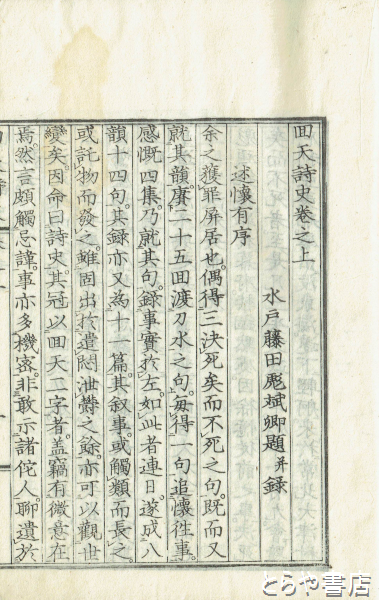 回天詩史巻之上
水戸藤田彪斌卿題并録
述懐有序
余之獲罪屏居也偶得三決死矣而不死之句既而又
就其韻賡二十五回渡刀水之句毎得一句追懐徃事
感慨四集乃就其句録事實於左如此者連日遂成八
韻十四句其録亦又為十一篇其叙事或觸類而長之
或託物而發之雖固出於遣悶泄鬱之餘亦可以觀世
變矣因命曰詩史其冠以回天二字者盖竊有微意在
焉然言頗觸忌諱事亦多機密非敢示諸佗人聊遺於
とらや書店